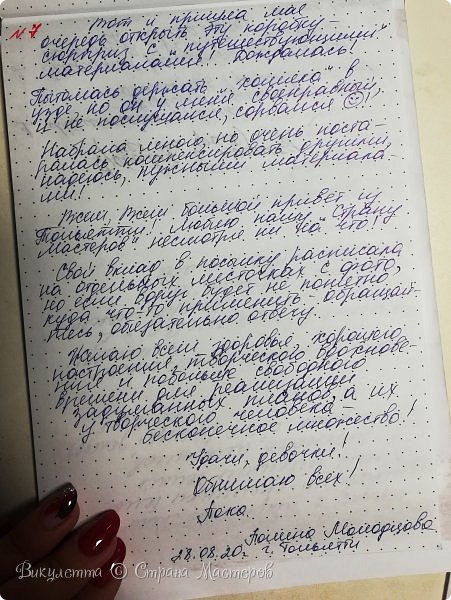 №7
Вот и пришла моя
очередь открыть эту коробку-
сюрприз с "путешествующими"
материалами! Дождалась!
Пыталась держать "хомяка" в
узде, но он у меня своенравный,
и не послушался, сорвался ☺!
Набрала много, но очень поста-
ралась компенсировать другими,
надеюсь, нужными материала-
ми!
Всем, всем большой привет из
Тольятти! Люблю нашу "Страну
Мастеров" несмотря ни на что!
Свой вклад в посылку расписала
на отдельных листочках с фото,
но если вдруг будет не понятно,
куда что-то применить - обращай-
тесь, обязательно отвечу.
Желаю всем здоровья, хорошего
настроения, творческого вдохнове-
ния и побольше свободного
времени для реализации
задуманных планов, а их
у творческого человека -
бесконечное множество!
Удачи, девочки!
Обнимаю всех!
Пока.
Полина Молодцова
28.08.20. г. Тольятти
Викулетта © Страна Мастеров